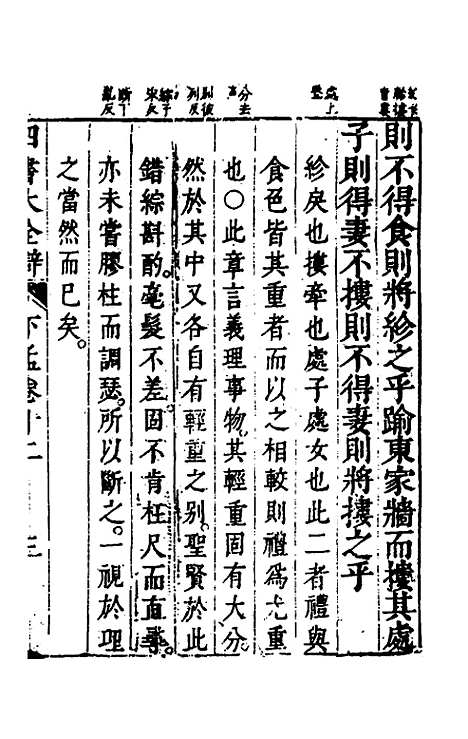 則不得食則將紾之乎踰東家牆而摟其處
子則得妻不摟則不得妻則將摟之乎
紾戾也摟牽也處子處女也此二者禮與
食色皆其重者而以之相較則禮爲尤重
也○此章言義理事物。其輕重固有大分。
然於其中又各自有輕重之别。聖賢於此
錯綜斟酌。毫髮不差。固不肯枉尺而直尋。
亦未嘗膠柱而調瑟。所以斷之。一視於理
之當然而已矣。
四書大全辯 下孟卷十二